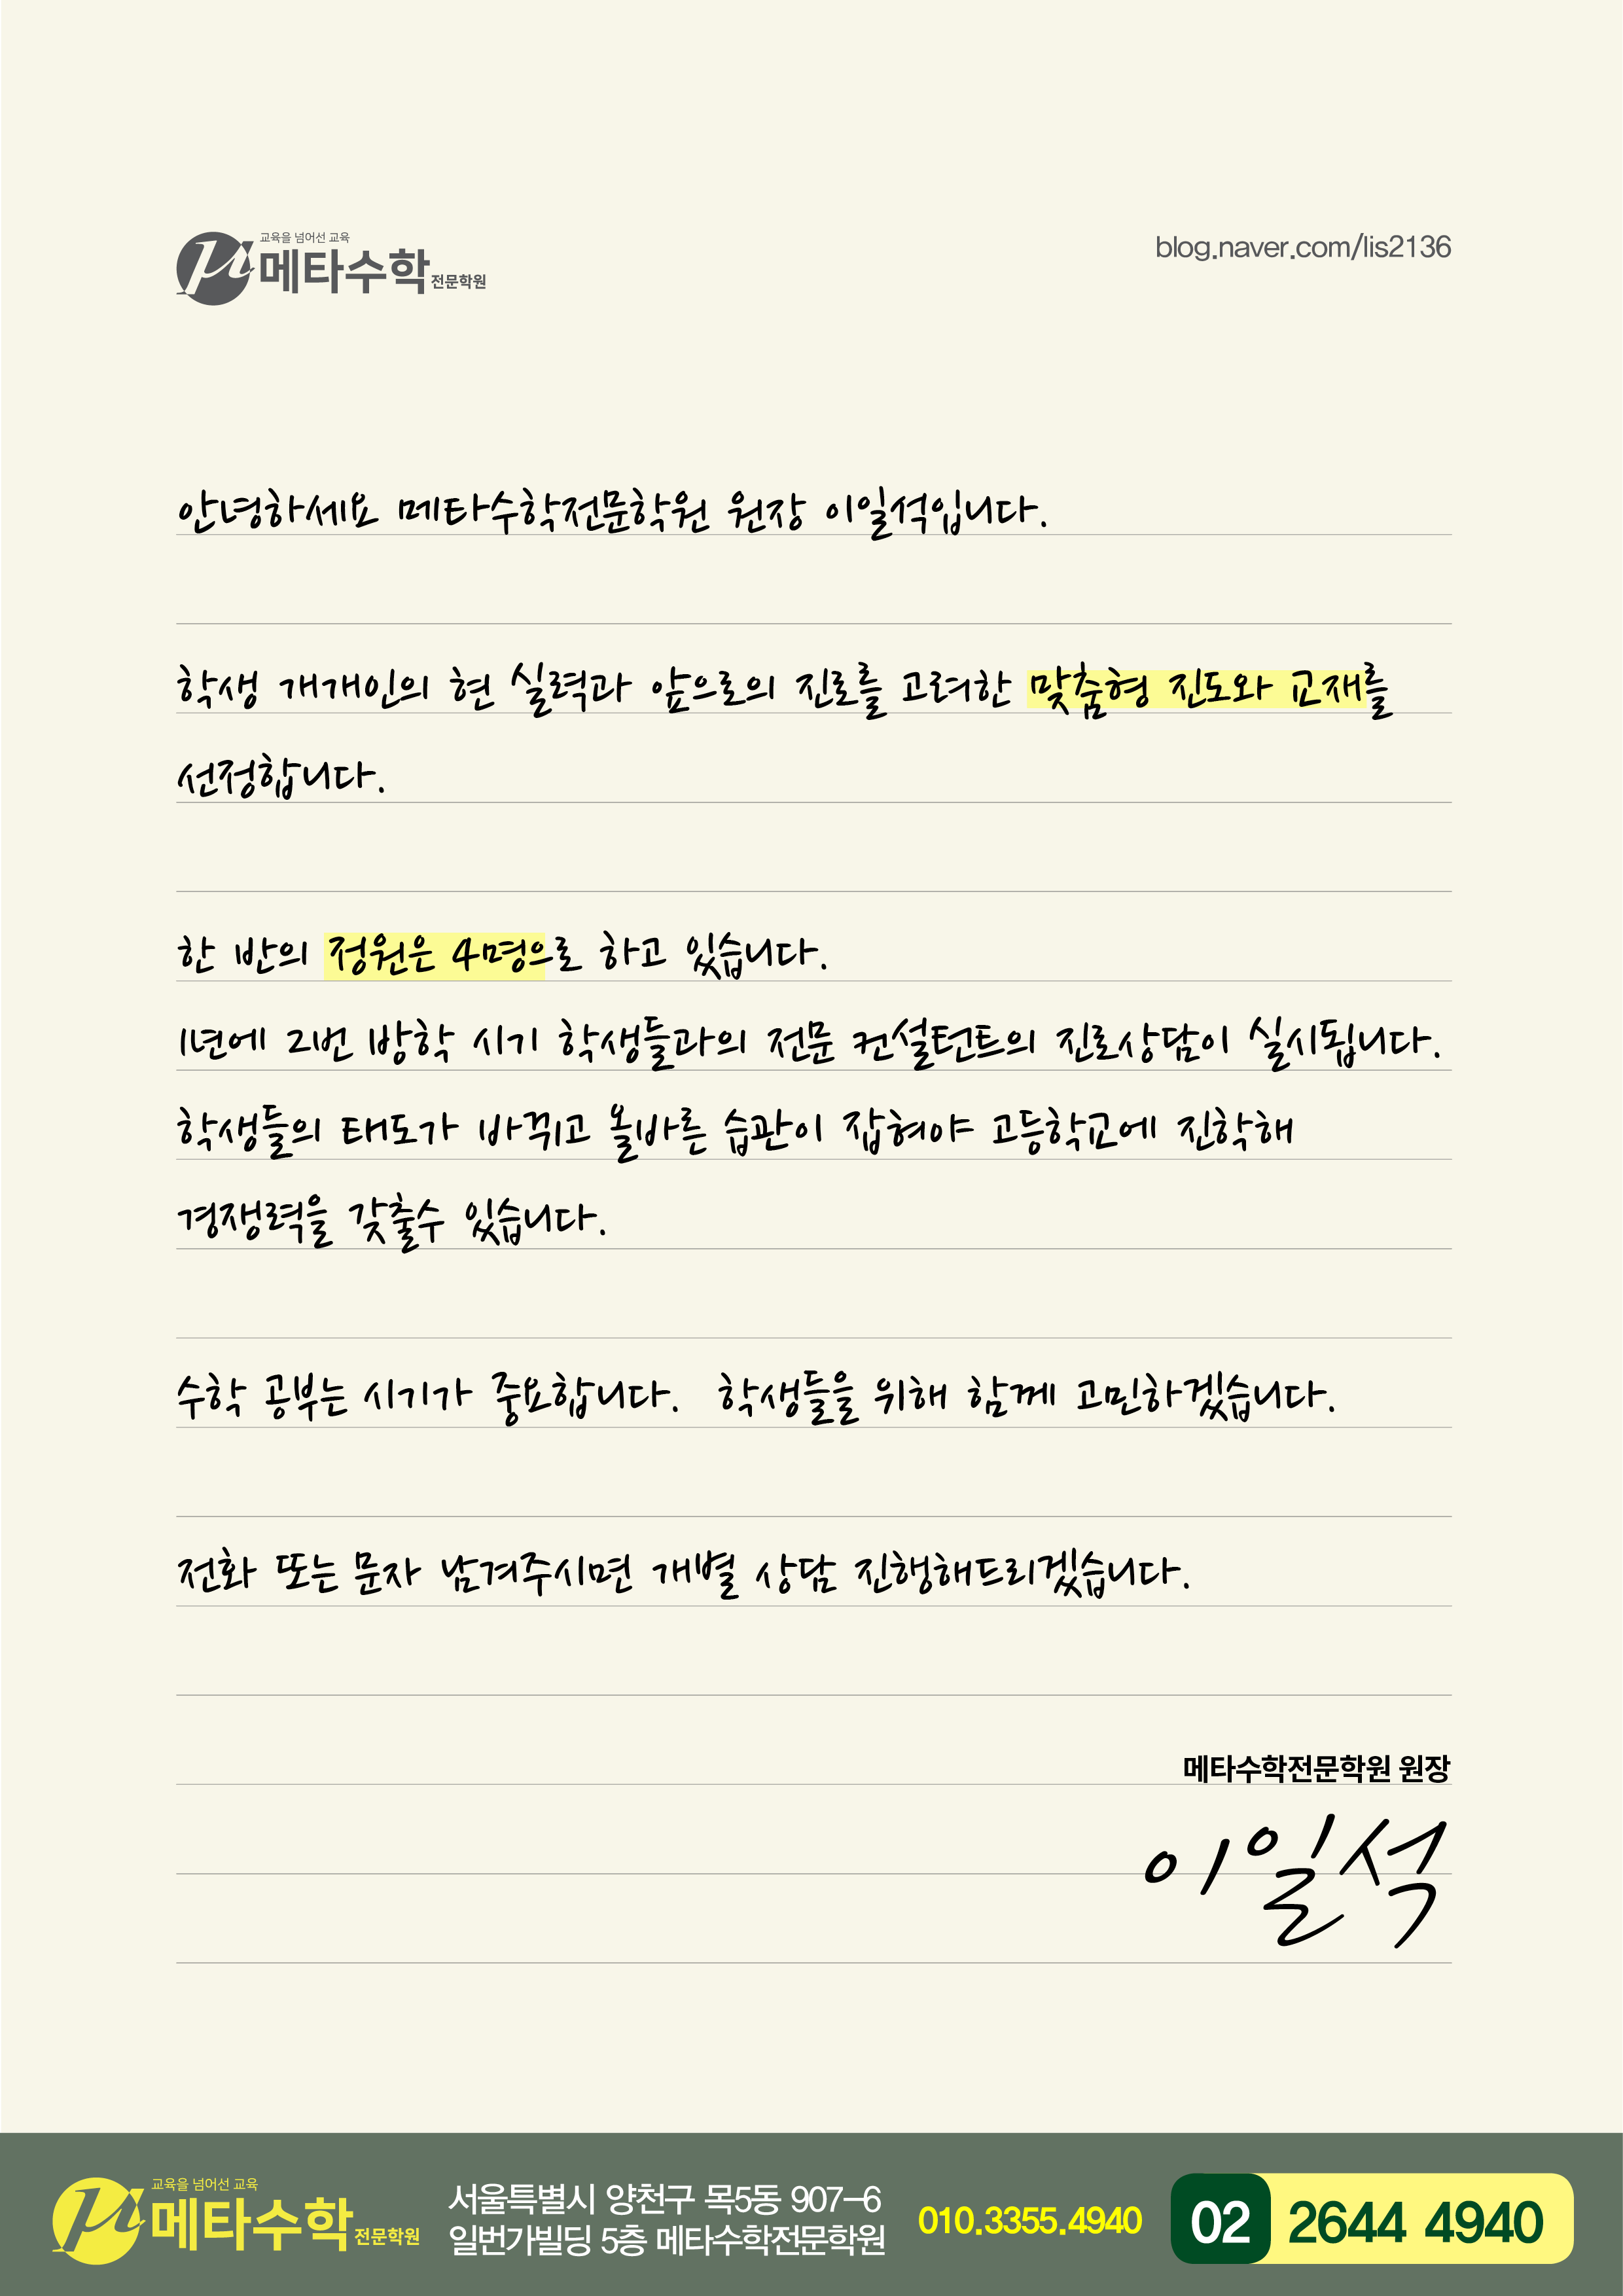 교육을 넘어선 교육
메타수학 전문학원
blog.naver.com/lis2136
안녕하세요 메타수학전문학원 원장 이일석입니다.
학생 개개인의 현 실력과 앞으로의 진로를 고려한 맞춤형 진도와 교재를
선정합니다.
한 반의 정원은 4명으로 하고 있습니다.
1년에 2번 방학 시기 학생들과의 전문 컨설턴트의 진로상담이 실시됩니다.
학생들의 태도가 바뀌고 올바른 습관이 잡혀야 고등학교에 진학해
경쟁력을 갖출수 있습니다.
수학 공부는 시기가 중요합니다. 학생들을 위해 함께 고민하겠습니다.
전화 또는 문자 남겨주시면 개별 상담 진행해드리겠습니다.
메타수학전문학원 원장
이일석
교육을 넘어선 교육
메타수학 전문학원
서울특별시 양천구 목5동 907-6
일번가빌딩 5층 메타수학전문학원
010.3355.4940
02 2644 4940